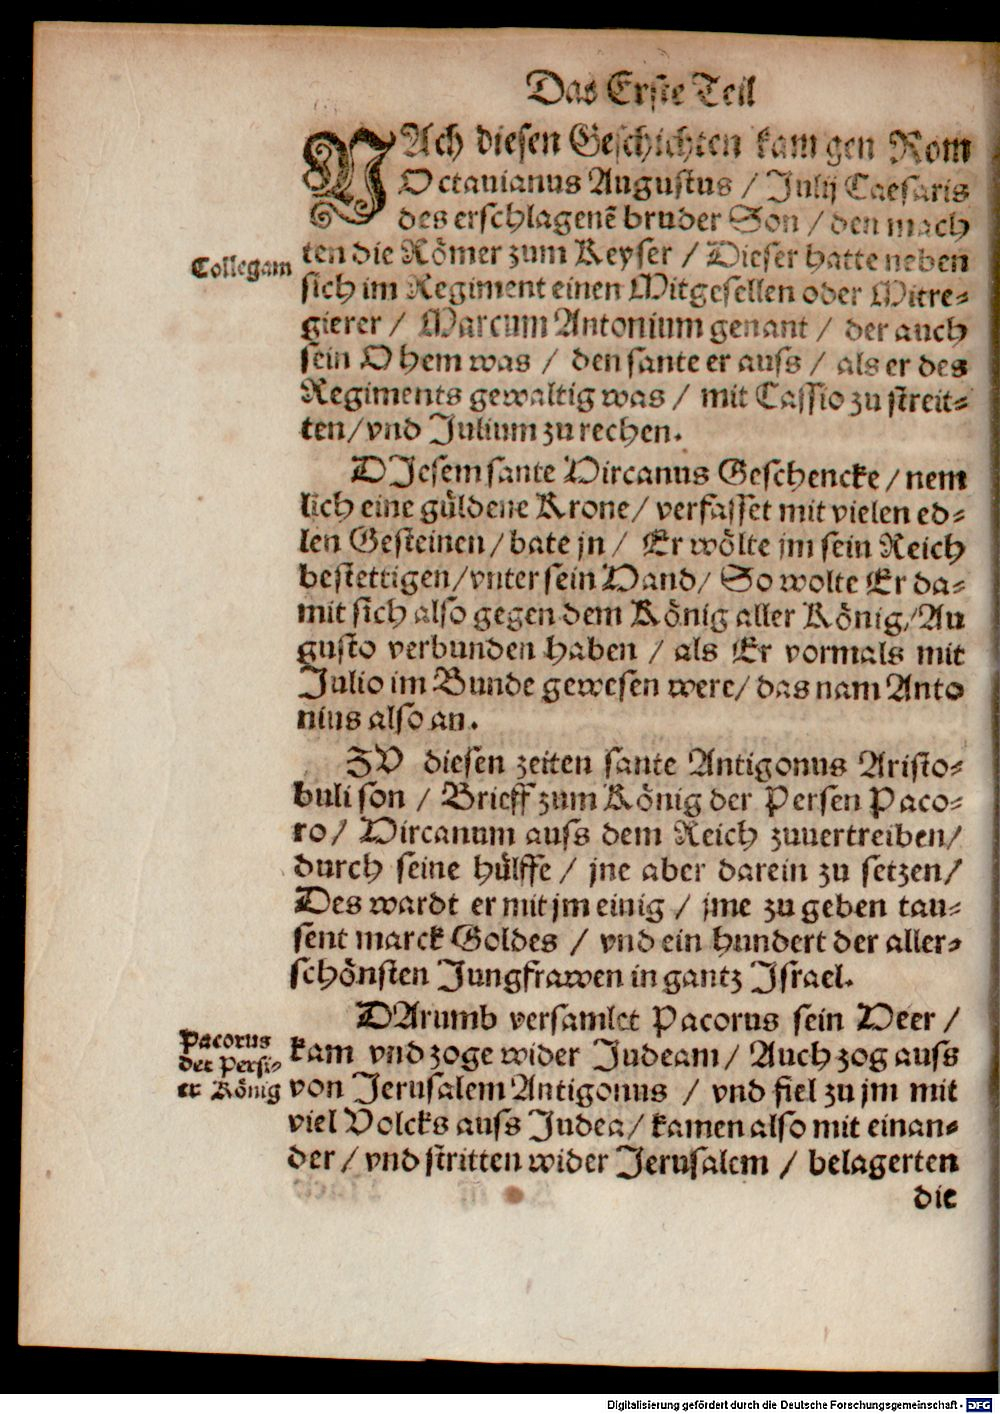 Das Erste Teil
NAch diesen Geschichten kam gen Rom
Octauianus Augustus / Julij Caesaris
des erschlagenē bruder Son / den mach
ten die Römer zum Keyser / Dieser hatte neben
Collegam
sich im Regiment einen Mitgesellen oder Mitre-
gierer / Marcum Antonium genant / der auch
sein Ohem was / den sante er auss / als er des
Regiments gewaltig was / mit Cassio zu streit-
ten/ vnd Julium zu rechen.
DJesem sante Hircanus Geschencke / nem
lich eine güldene Krone/ verfasset mit vielen ed-
len Gesteinen/ bate jn / Er wölte jm sein Reich
bestettigen/vnter sein Hand/ So wolte Er da-
mit sich also gegen dem König aller König/ Au
gusto verbunden haben / als Er vormals mit
Julio im Bunde gewesen were/ das nam Anto
nius also an.
ZV diesen zeiten sante Antigonus Aristo-
buli son / Brieff zum König der Persen Paco-
ro/ Hircanum auss dem Reich zuuertreiben/
durch seine hülffe / jne aber darein zu setzen/
Des wardt er mit jm einig / jme zu geben tau-
sent marck Goldes / vnd ein hundert der aller-
schönsten Jungfrawen in gantz Jsrael.
DArumb versamlet Pacorus sein Heer /
Pacorus
der Persi-
er König
kam vnd zoge wider Judeam/ Auch zog auss
von Jerusalem Antigonus / vnd fiel zu jm mit
viel Volcks auss Judea/ kamen also mit einan-
der / vnd stritten wider Jerusalem / belagerten
die
Digitalisierung gefördert durch die Deutsche Forschungsgemeinschaft - DFG